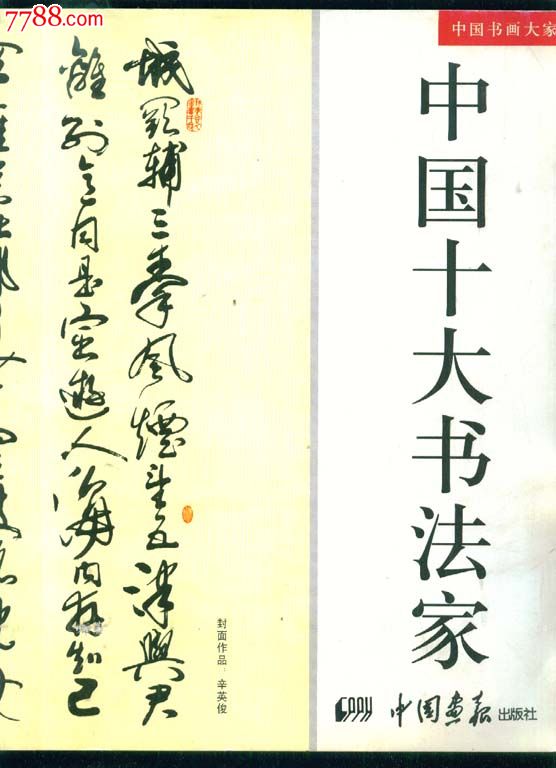 7788.com
中国书画大家
中国十大书法家
城闕輔三秦風煙望五津與君
離別意同是宦遊人海内存知己
封面作品：辛英俊
CPPH 中国画報出版社